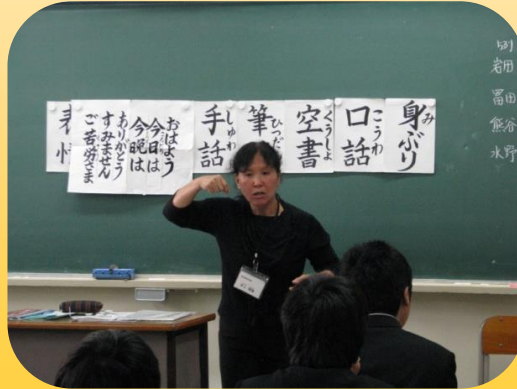 身ぶり
み
口話
こうわ
空書
くうしょ
筆
ひつだ
手話
しゅわ
おはよう
今日は
今晩は
ありがとう
すみません
ご苦労さま
岩田
冨田
熊谷
水野